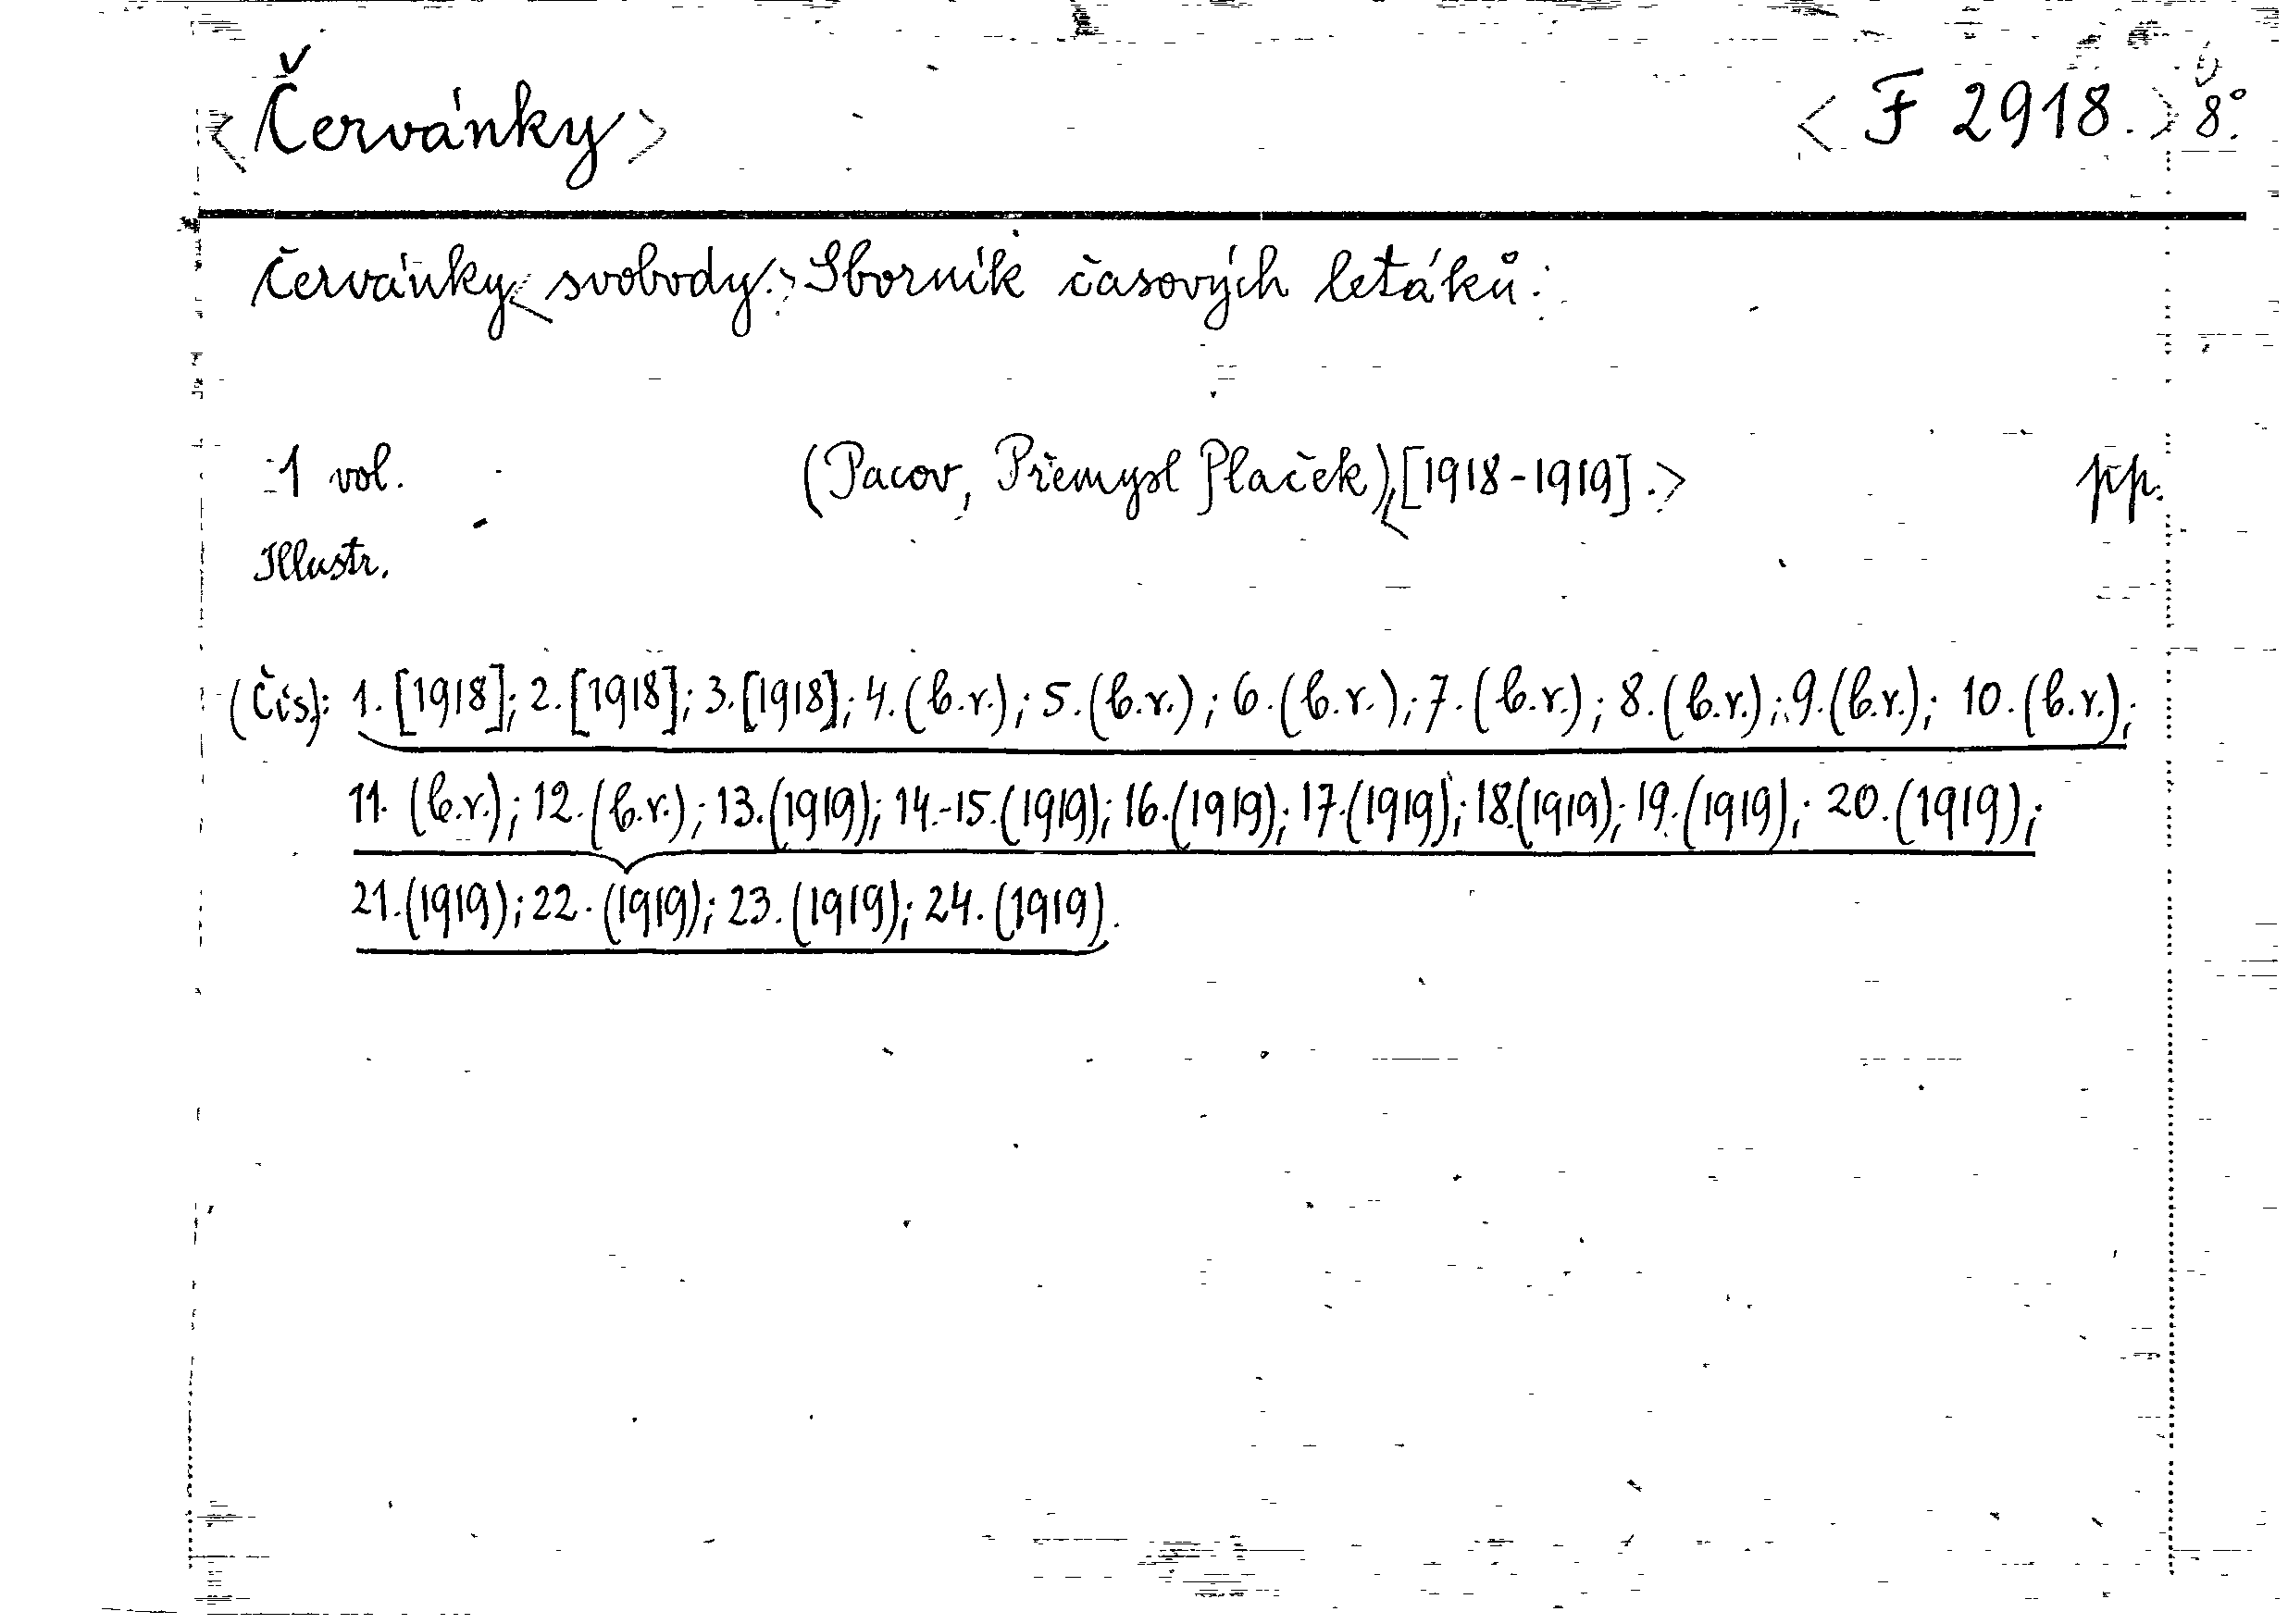 <Červánky> <F 2918.> 8°.
Červánky< svobody.> Sborník časových letáků.
1 vol. (Pacov, Přemysl Plaček),<[1918-1919].> pp.
Illustr.
(Čís.): 1. [1918]; 2. [1918]; 3. [1918]; 4. (b.r.); 5. (b.r.); 6. (b.r.); 7. (b.r.); 8. (b.r.); 9. (b.r.); 10. (b.r.);
11. (b.r.); 12. (b.r.); 13. (1919); 14.-15. (1919); 16. (1919); 17. (1919); 18. (1919); 19. (1919); 20. (1919);
21. (1919); 22. (1919); 23. (1919); 24. (1919).